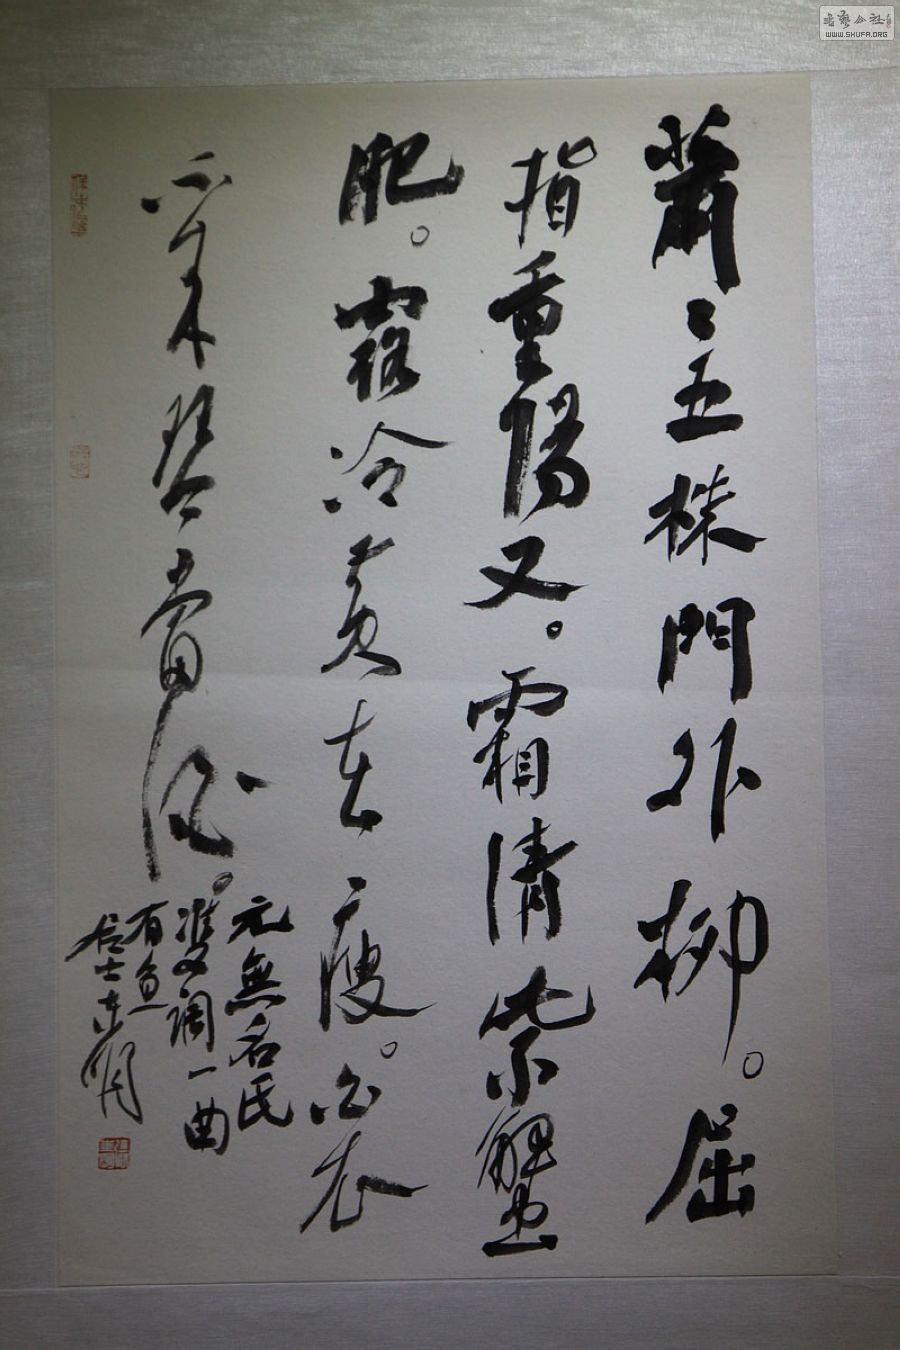 蕭〻五株門外柳。屈
指重陽又。霜清紫蟹
肥。露冷黄花瘦。白衣
不来琴當酒。
元無名氏
雙調一曲
有魚
居士东明
书艺公社
WWW.SHUFA.ORG